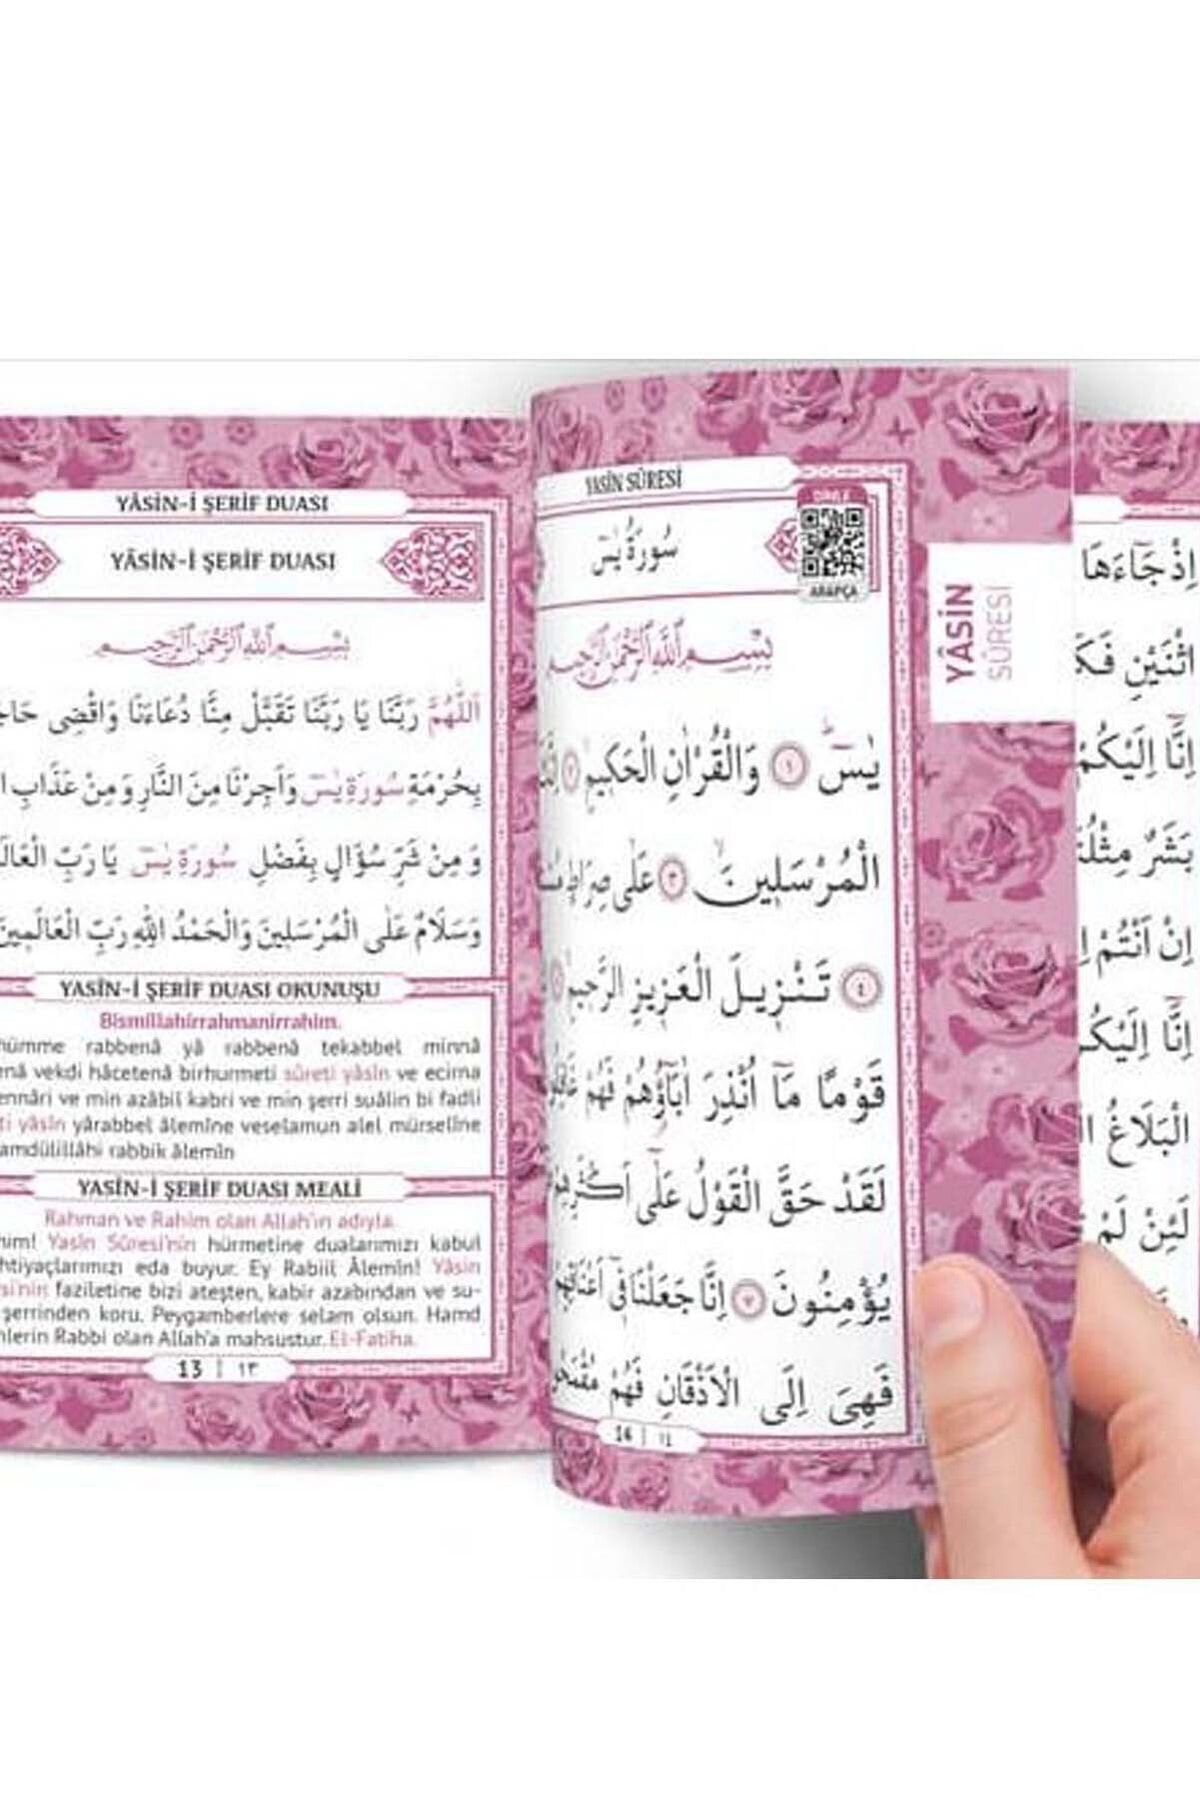 YÂSİN-İ ŞERİF DUASI
YÂSİN-İ ŞERİF DUASI
بِسْمِ اللهِ الرَّحْمٰنِ الرَّحِيمِ
اَللّٰهُمَّ رَبَّنَا يَا رَبَّنَا تَقَبَّلْ مِنَّا دُعَاءَنَا وَاقْضِى
بِحُرْمَةِ سُورَةِ يٰسٓ وَاَجِرْنَا مِنَ النَّارِ وَمِنْ عَذَابِ
وَمِنْ شَرِّ سُؤَالٍ بِفَضْلِ سُورَةِ يٰسٓ يَا رَبِّ
وَسَلَامٌ عَلَى الْمُرْسَلِينَ وَالْحَمْدُ لِلّٰهِ رَبِّ الْعَالَمِينَ
YASİN-İ ŞERİF DUASI OKUNUŞU
Bismillahirrahmanirrahim.
rabbenâ yâ rabbenâ tekabbel minnâ
vekdi hâcetenâ birhurmeti sûreti yâsîn ve ecirna
ve min azâbil kabri ve min şerri suâlin bi fadli
yâsîn yârabbel âlemîne veselamun alel mürselîne
rabbik âlemîn
YASİN-İ ŞERİF DUASI MEALİ
Rahman ve Rahim olan Allah'ın adıyla.
Yasîn Sûresi'nin hürmetine dualarımızı kabul
eda buyur. Ey Rabiil Âlemîn! Yâsin
faziletine bizi ateşten, kabir azabından ve su-
şerrinden koru. Peygamberlere selam olsun. Hamd
Rabbi olan Allah'a mahsustur. El-Fatiha.
13 | ١٣
YASİN SÛRESİ
سُورَةُ يٰسٓ
DİNLE
ARAPÇA
بِسْمِ اللهِ الرَّحْمٰنِ الرَّحِيمِ
يٰسٓ ١ وَالْقُرْاٰنِ الْحَكِيمِ ٢
الْمُرْسَلِينَ ٣ عَلٰى صِرَاطٍ
٤ تَنْزِيلَ الْعَزِيزِ الرَّحِيمِ
قَوْمًا مَٓا اُنْذِرَ اٰبَٓاؤُ۬هُمْ فَهُمْ
لَقَدْ حَقَّ الْقَوْلُ عَلٰٓى
يُؤْمِنُونَ ٧ اِنَّا جَعَلْنَا فٓي
فَهِيَ اِلَى الْاَذْقَانِ فَهُمْ
14 | ١٤
YÂSİN
SÛRESİ
اِذْ جَٓاءَهَا
اثْنَيْنِ
اِنَّٓا اِلَيْكُمْ
بَشَرٌ
اِنْ اَنْتُمْ
اِنَّٓا
الْبَلَاغُ
لَئِنْ لَمْ